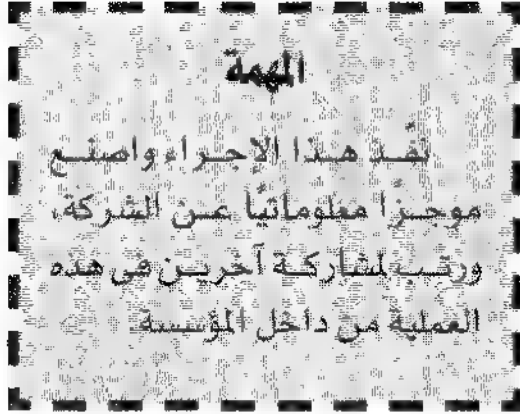 المهمة
نفِّذ هذا الإجراء واصنع
موجزًا معلوماتيًا عن الشركة،
ورتب لمشاركة آخرين فى هذه
العملية من داخل المؤسسة